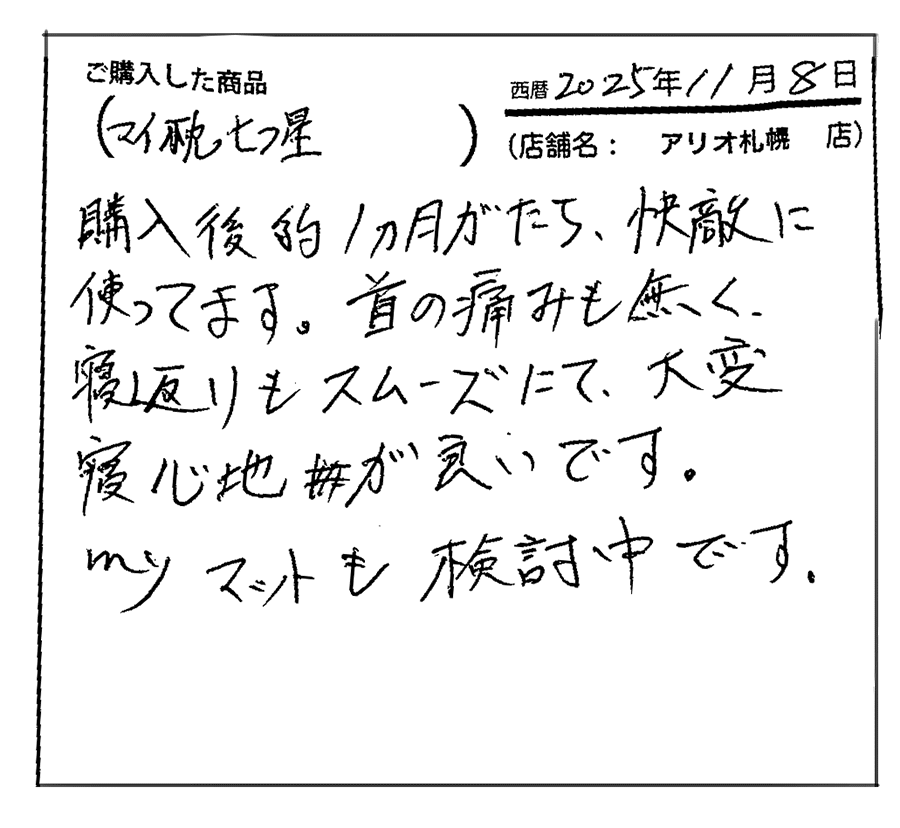 ご購入した商品
西暦2025年11月8日
(マイ枕七つ星 )
(店舗名： アリオ札幌 店)
購入後約1ヵ月がたち、快敵に
使ってます。首の痛みも無く、
寝返りもスムーズにて、大変
寝心地が良いです。
myマットも検討中です。